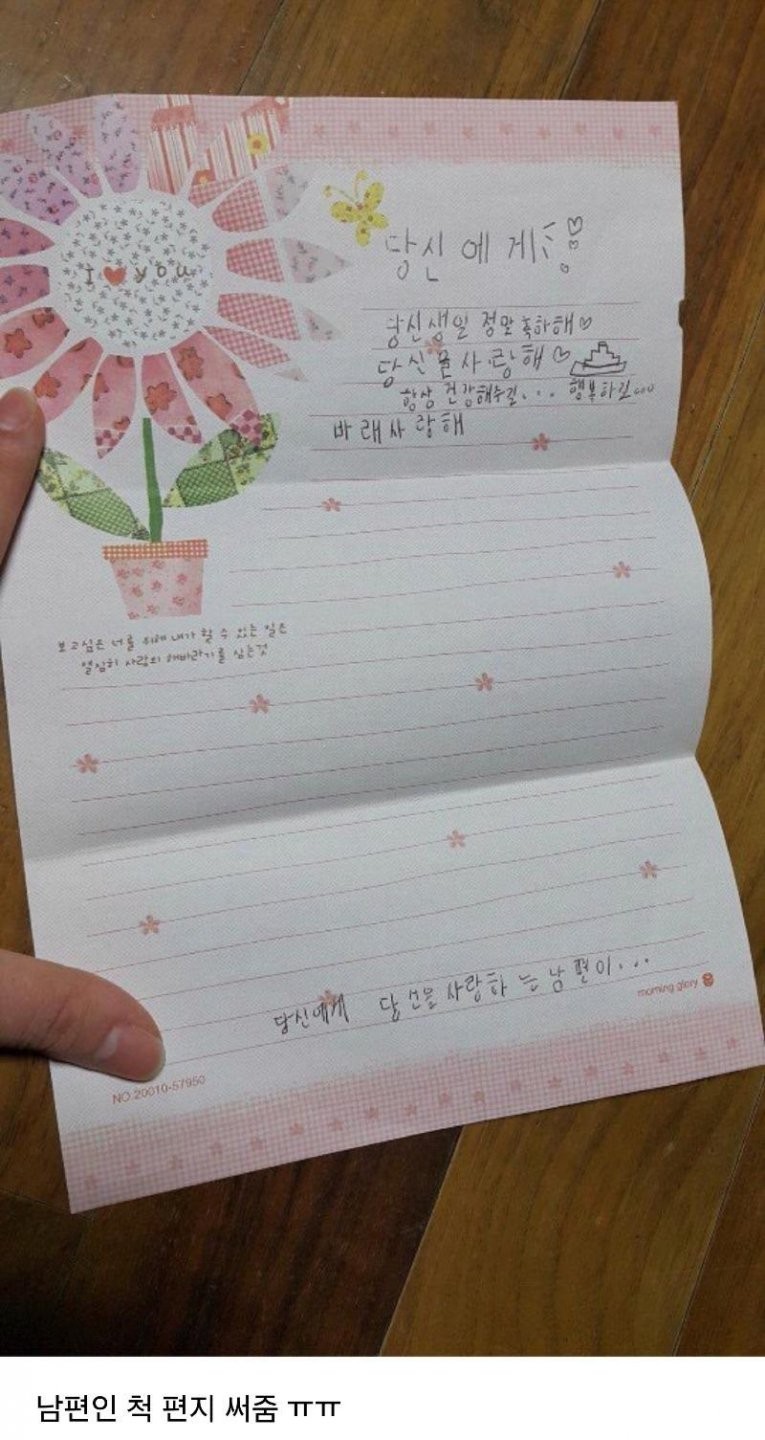 I ♥ you
당신에게
당신생일 정말 축하해♡
당신을사랑해♡
항상 건강해주길... 행복하길...
바래사랑해
보고싶은 너를 위해 내가 할 수 있는 일은
열심히 사랑의 해바라기를 심는것
당신에게 당신을사랑하는남편이...
morning glory
NO.20010-57950
남편인 척 편지 써줌 ㅠㅠ